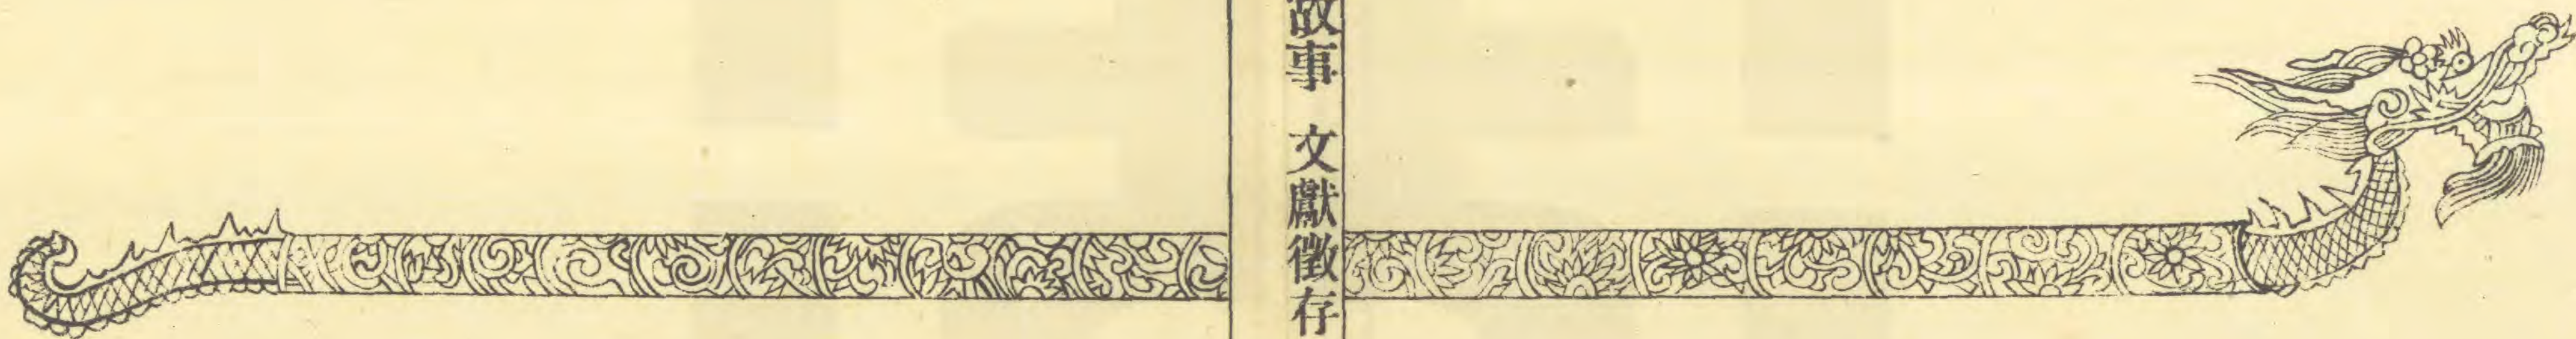 故事 文獻徵存